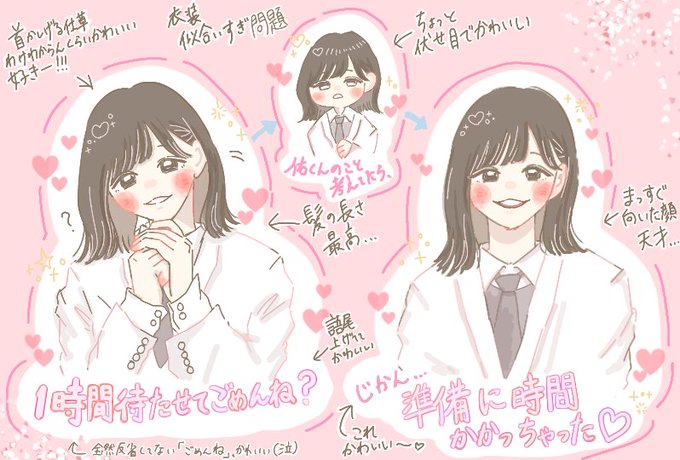 首かしげる仕草
わけわからんくらいかわいい
好きー!!!
衣装
似合いすぎ問題
ちょっと
伏せ目でかわいい
佑くんのこと
考えてたら、
髪の長さ
最高…
まっすぐ
向いた顔
天才…
?
語尾
上げて
かわいい
1時間待たせてごめんね?
じかん…
準備に時間
かかっちゃった♡
これ
かわいい〜♡
全然反省してない「ごめんね」、かわいい(泣)